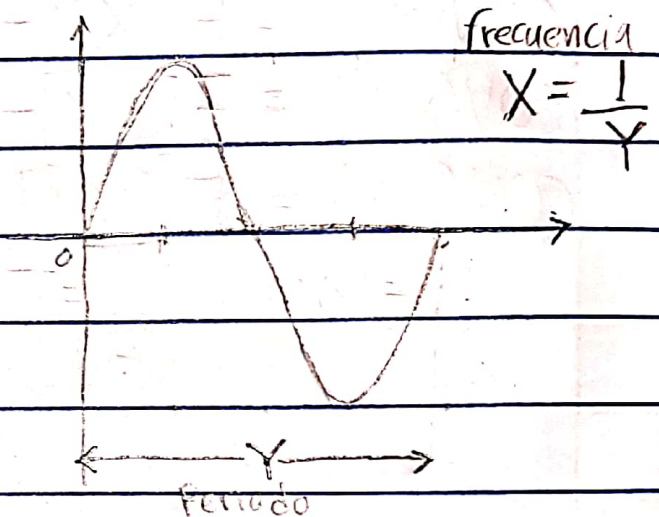 frecuencia
X = 1/Y
0
Y
Periodo